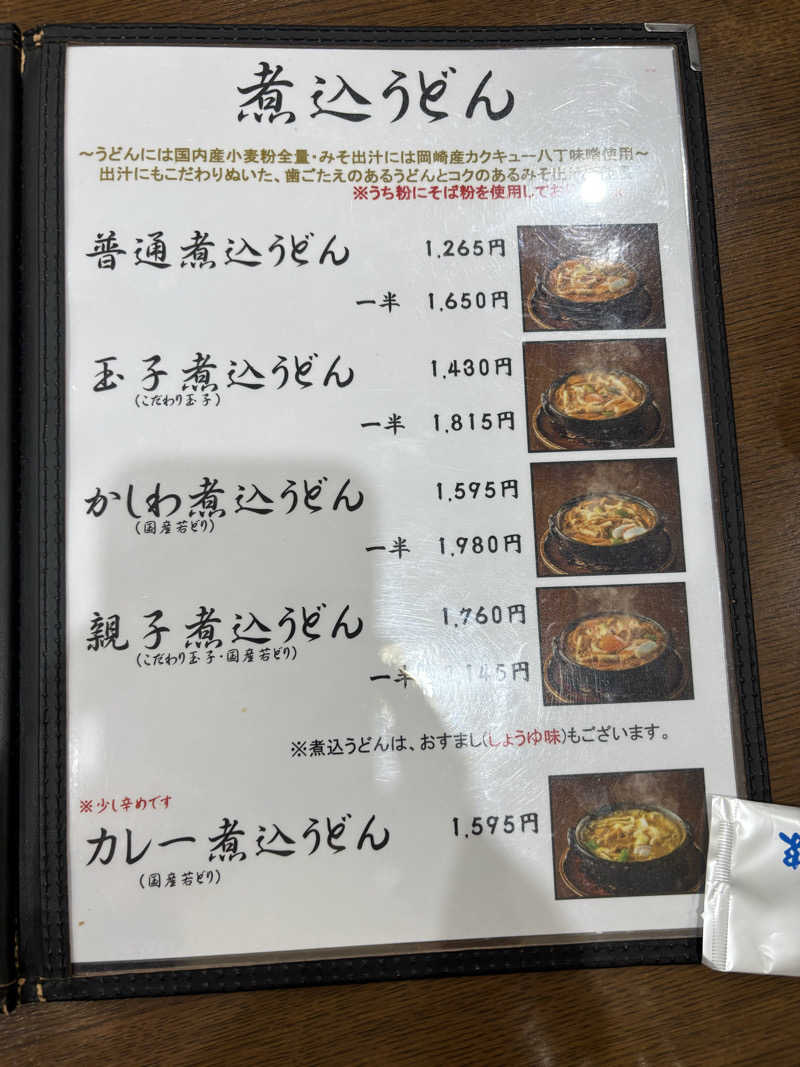 煮込うどん
～うどんには国内産小麦粉全量・みそ出汁には岡崎産カクキュー八丁味噌使用～
出汁にもこだわりぬいた、歯ごたえのあるうどんとコクのあるみそ出汁
※うち粉にそば粉を使用してお
普通煮込うどん 1,265円
一半 1,650円
玉子煮込うどん 1,430円
(こだわり玉子)
一半 1,815円
かしわ煮込うどん 1,595円
(国産若どり)
一半 1,980円
親子煮込うどん 1,760円
(こだわり玉子・国産若どり)
一半 145円
※煮込うどんは、おすまし(しょうゆ味)もございます。
※少し辛めです
カレー煮込うどん 1,595円
(国産若どり)